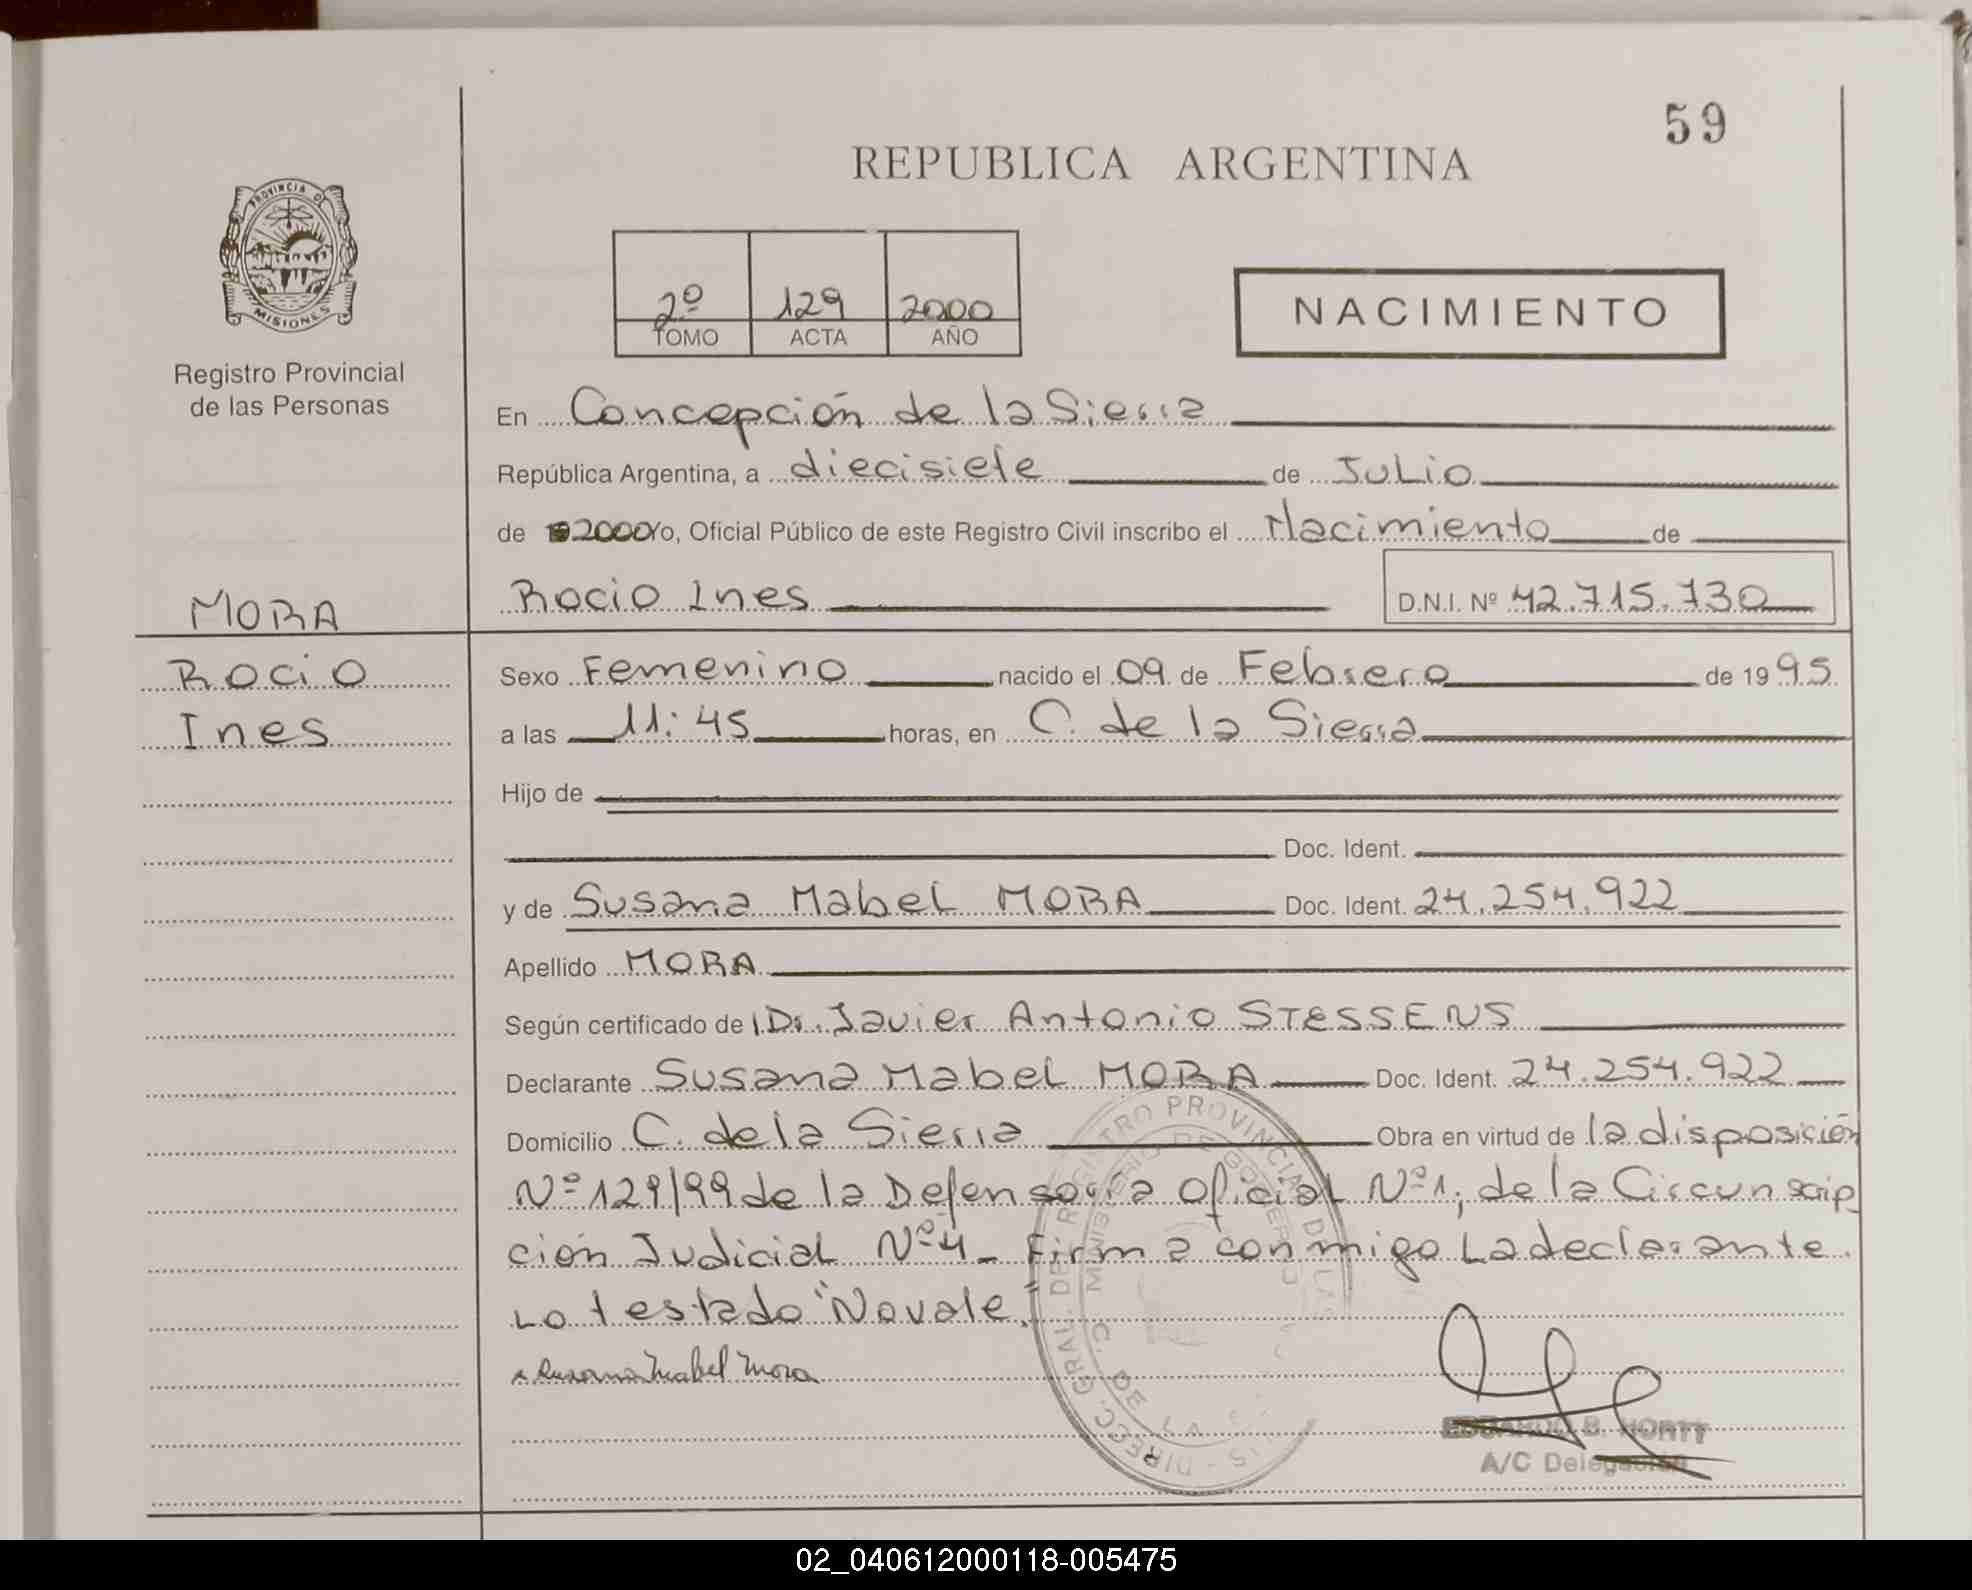 59
REPUBLICA ARGENTINA
PROVINCIA DE
MISIONES
2º 129 2000
TOMO ACTA AÑO
NACIMIENTO
Registro Provincial
de las Personas
En Concepción de la Sierra
República Argentina, a diecisiete de Julio
de 2000 Yo, Oficial Público de este Registro Civil inscribo el Nacimiento de
Rocio Ines D.N.I. Nº 42.715.730
MORA
Rocio
Ines
Sexo Femenino nacido el 09 de Febrero de 1995
a las 11:45 horas, en C. de la Sierra
Hijo de
Doc. Ident.
y de Susana Mabel MORA Doc. Ident. 24.254.922
Apellido MORA
Según certificado de Dr. Javier Antonio STESSENS
Declarante Susana Mabel MORA Doc. Ident. 24.254.922
Domicilio C. de la Sierra Obra en virtud de la disposición
Nº 129/99 de la Defensoria Oficial Nº 1, de la Circunscrip
ción Judicial Nº 4 - Firma conmigo La declarante.
Lo testado "No vale."
Susana Mabel Mora
B. HORTT
A/C Delegación
02_040612000118-005475